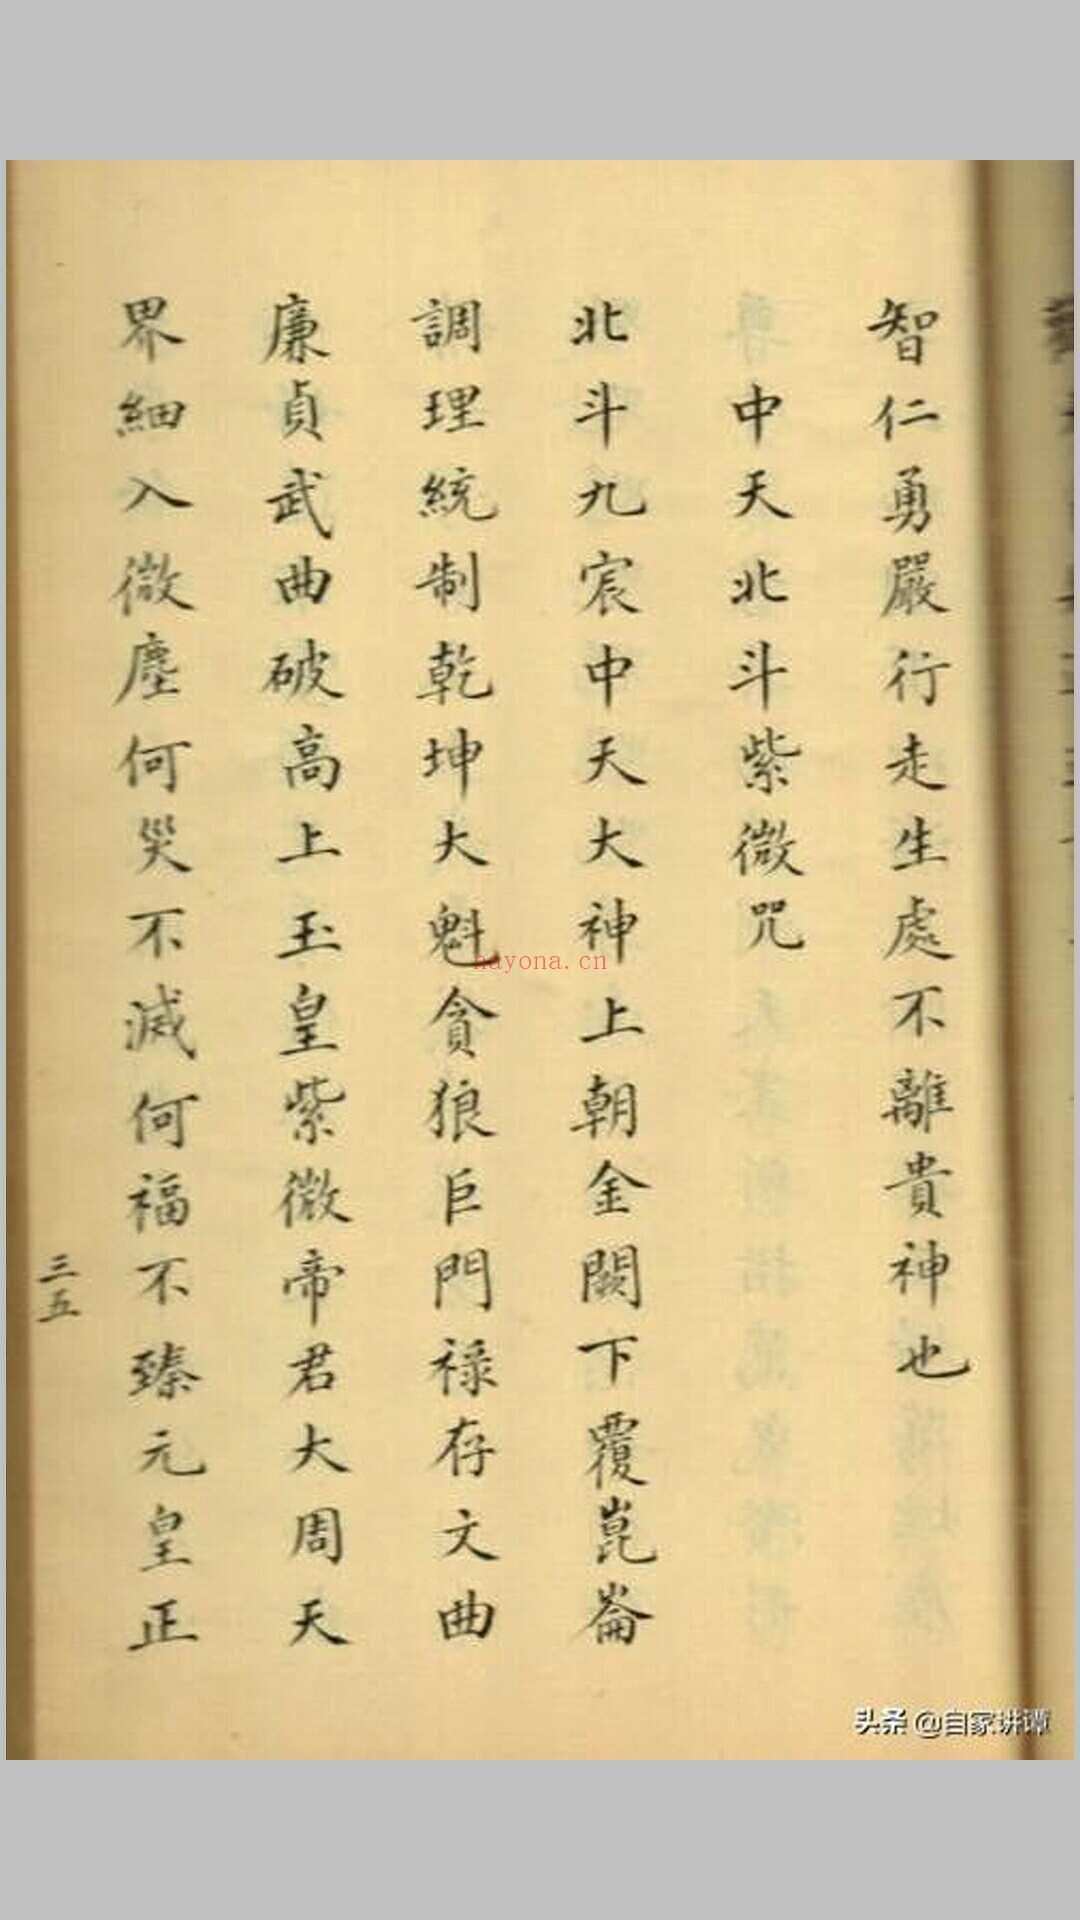 智仁勇嚴行走生處不離貴神也
中天北斗紫微咒
北斗九宸中天大神上朝金闕下覆崑崙
調理統制乾坤大魁貪狼巨門祿存文曲
廉貞武曲破高上玉皇紫微帝君大周天
界細入微塵何災不滅何福不臻元皇正
三五
hayona.cn
头条 @自家讲谭